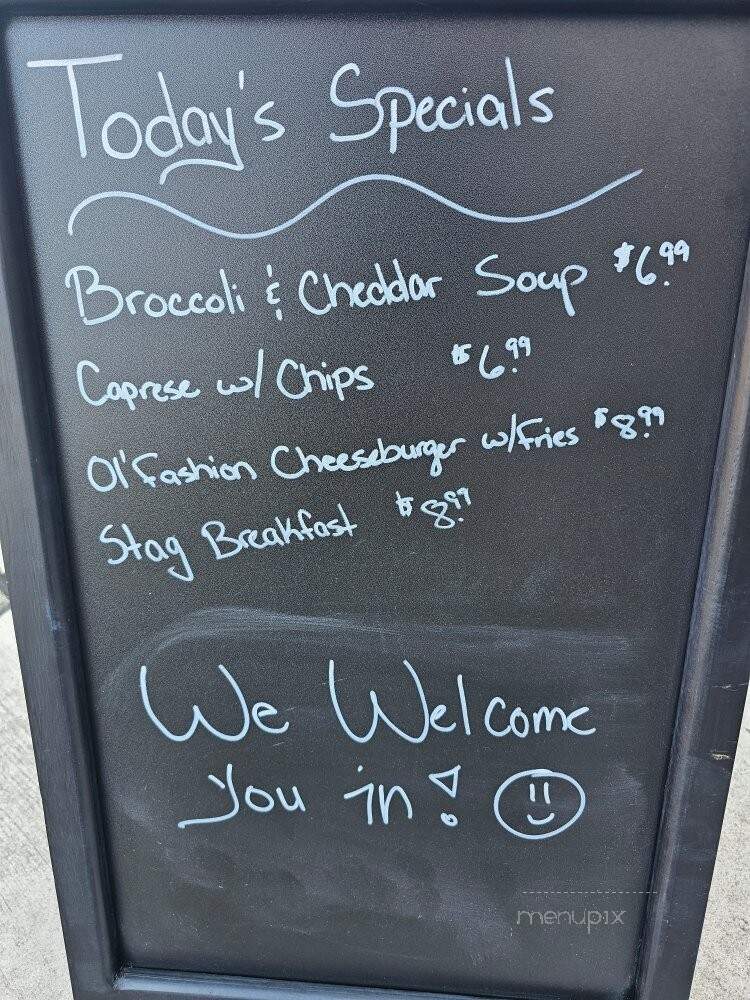 Today's Specials
Broccoli & Cheddar Soup $6.99
Caprese w/ Chips $6.99
Ol' Fashion Cheeseburger w/Fries $8.99
Stag Breakfast $8.99
We Welcome
You in!
menupix